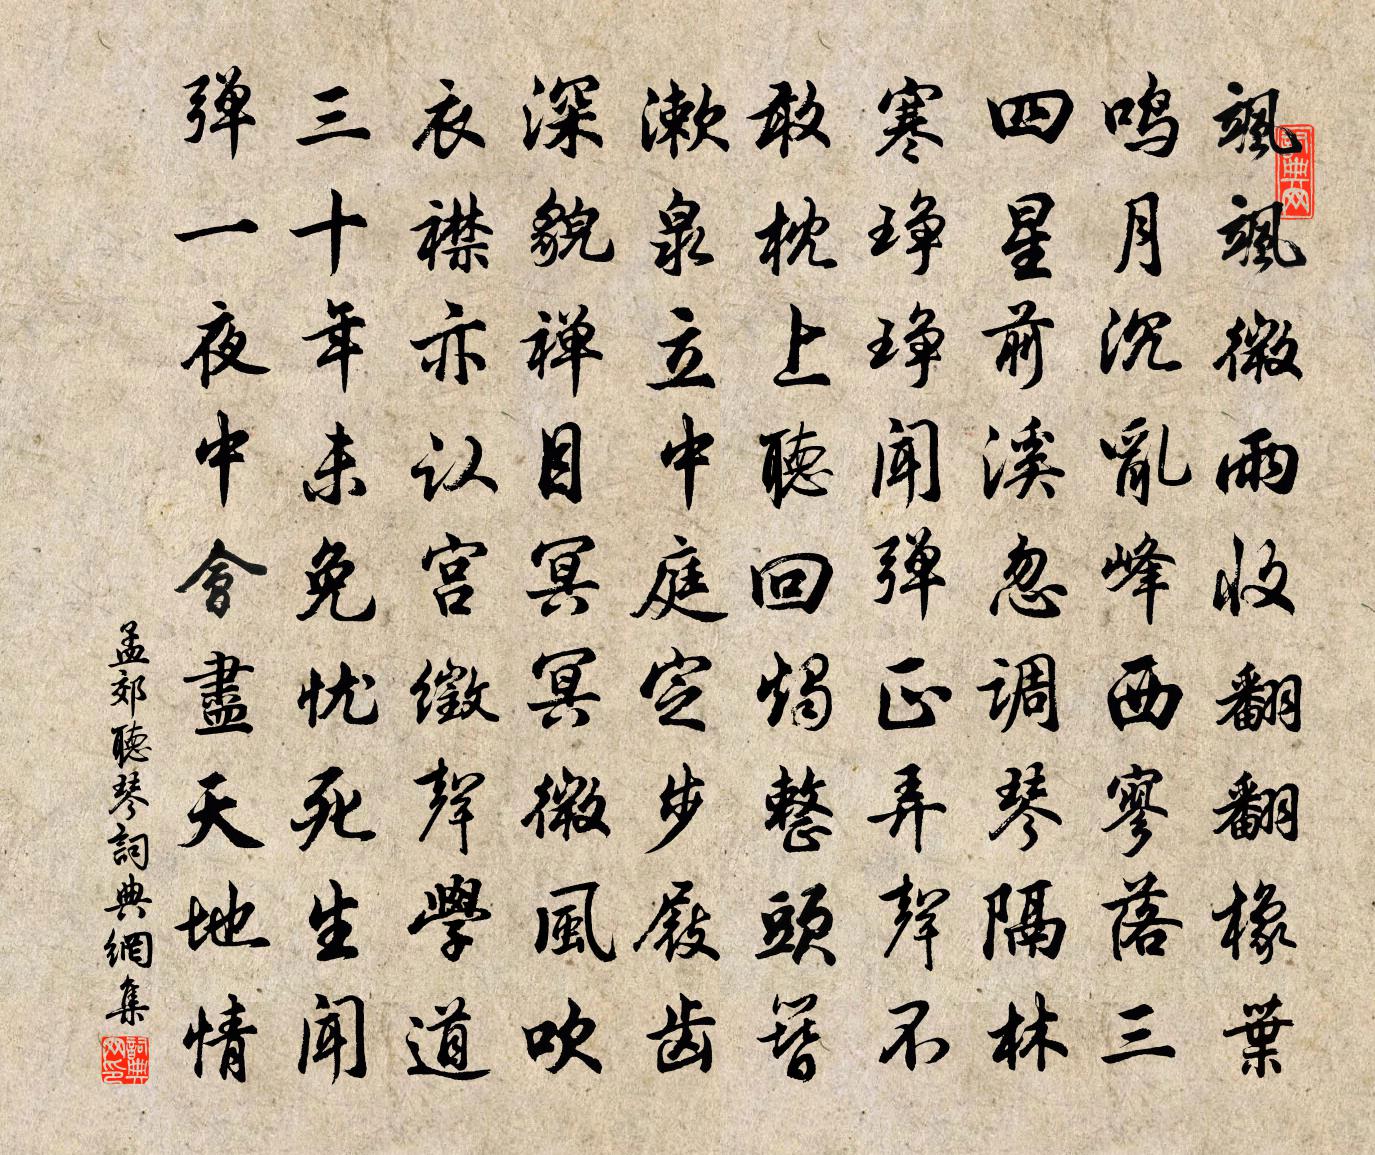 飒飒微雨收翻翻橡葉
鸣月沉亂峰西寥落三
四星前溪忽調琴隔林
寒琤琤闻弹正弄聲不
敢枕上聽回燭整頭簪
漱泉立中庭定步屐齿
深貌禅目冥冥微風吹
衣襟亦认宫徵聲學道
三十年未免忧死生闻
弹一夜中會盡天地情
孟郊聽琴詞典網集
词典网
詞典网印